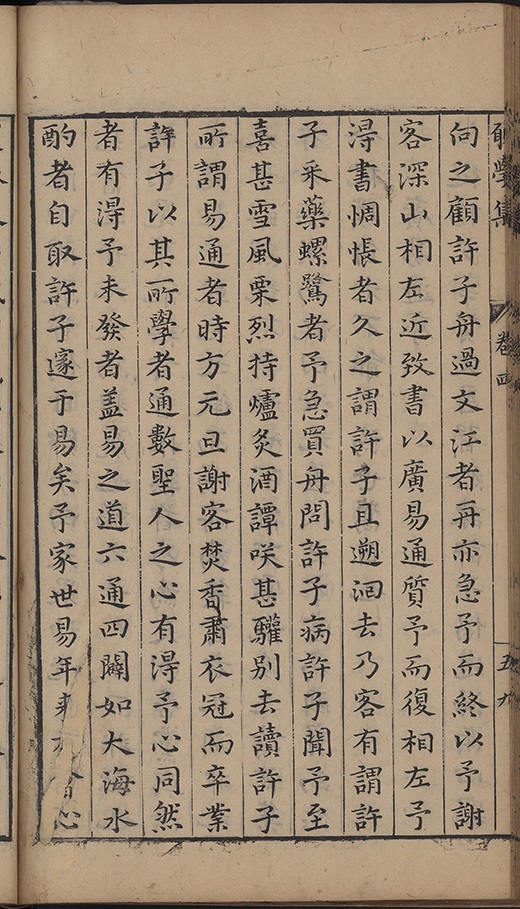 學集 卷四 五九
向之顧許子舟過文江者再亦急予而終以予謝
客深山相左近致書以廣易通質予而復相左予
淂書惆悵者久之謂許子且遡洄去乃客有謂許
子采藥螺鷺者予急買舟問許子病許子聞予至
喜甚雪風栗烈持爐炙酒譚咲甚驩別去讀許子
所謂易通者時方元旦謝客焚香肅衣冠而卒業
許子以其所學者通數聖人之心有淂予心同然
者有淂予未發者盖易之道六通四闢如大海水
酌者自取許子邃于易矣予家世易年來心